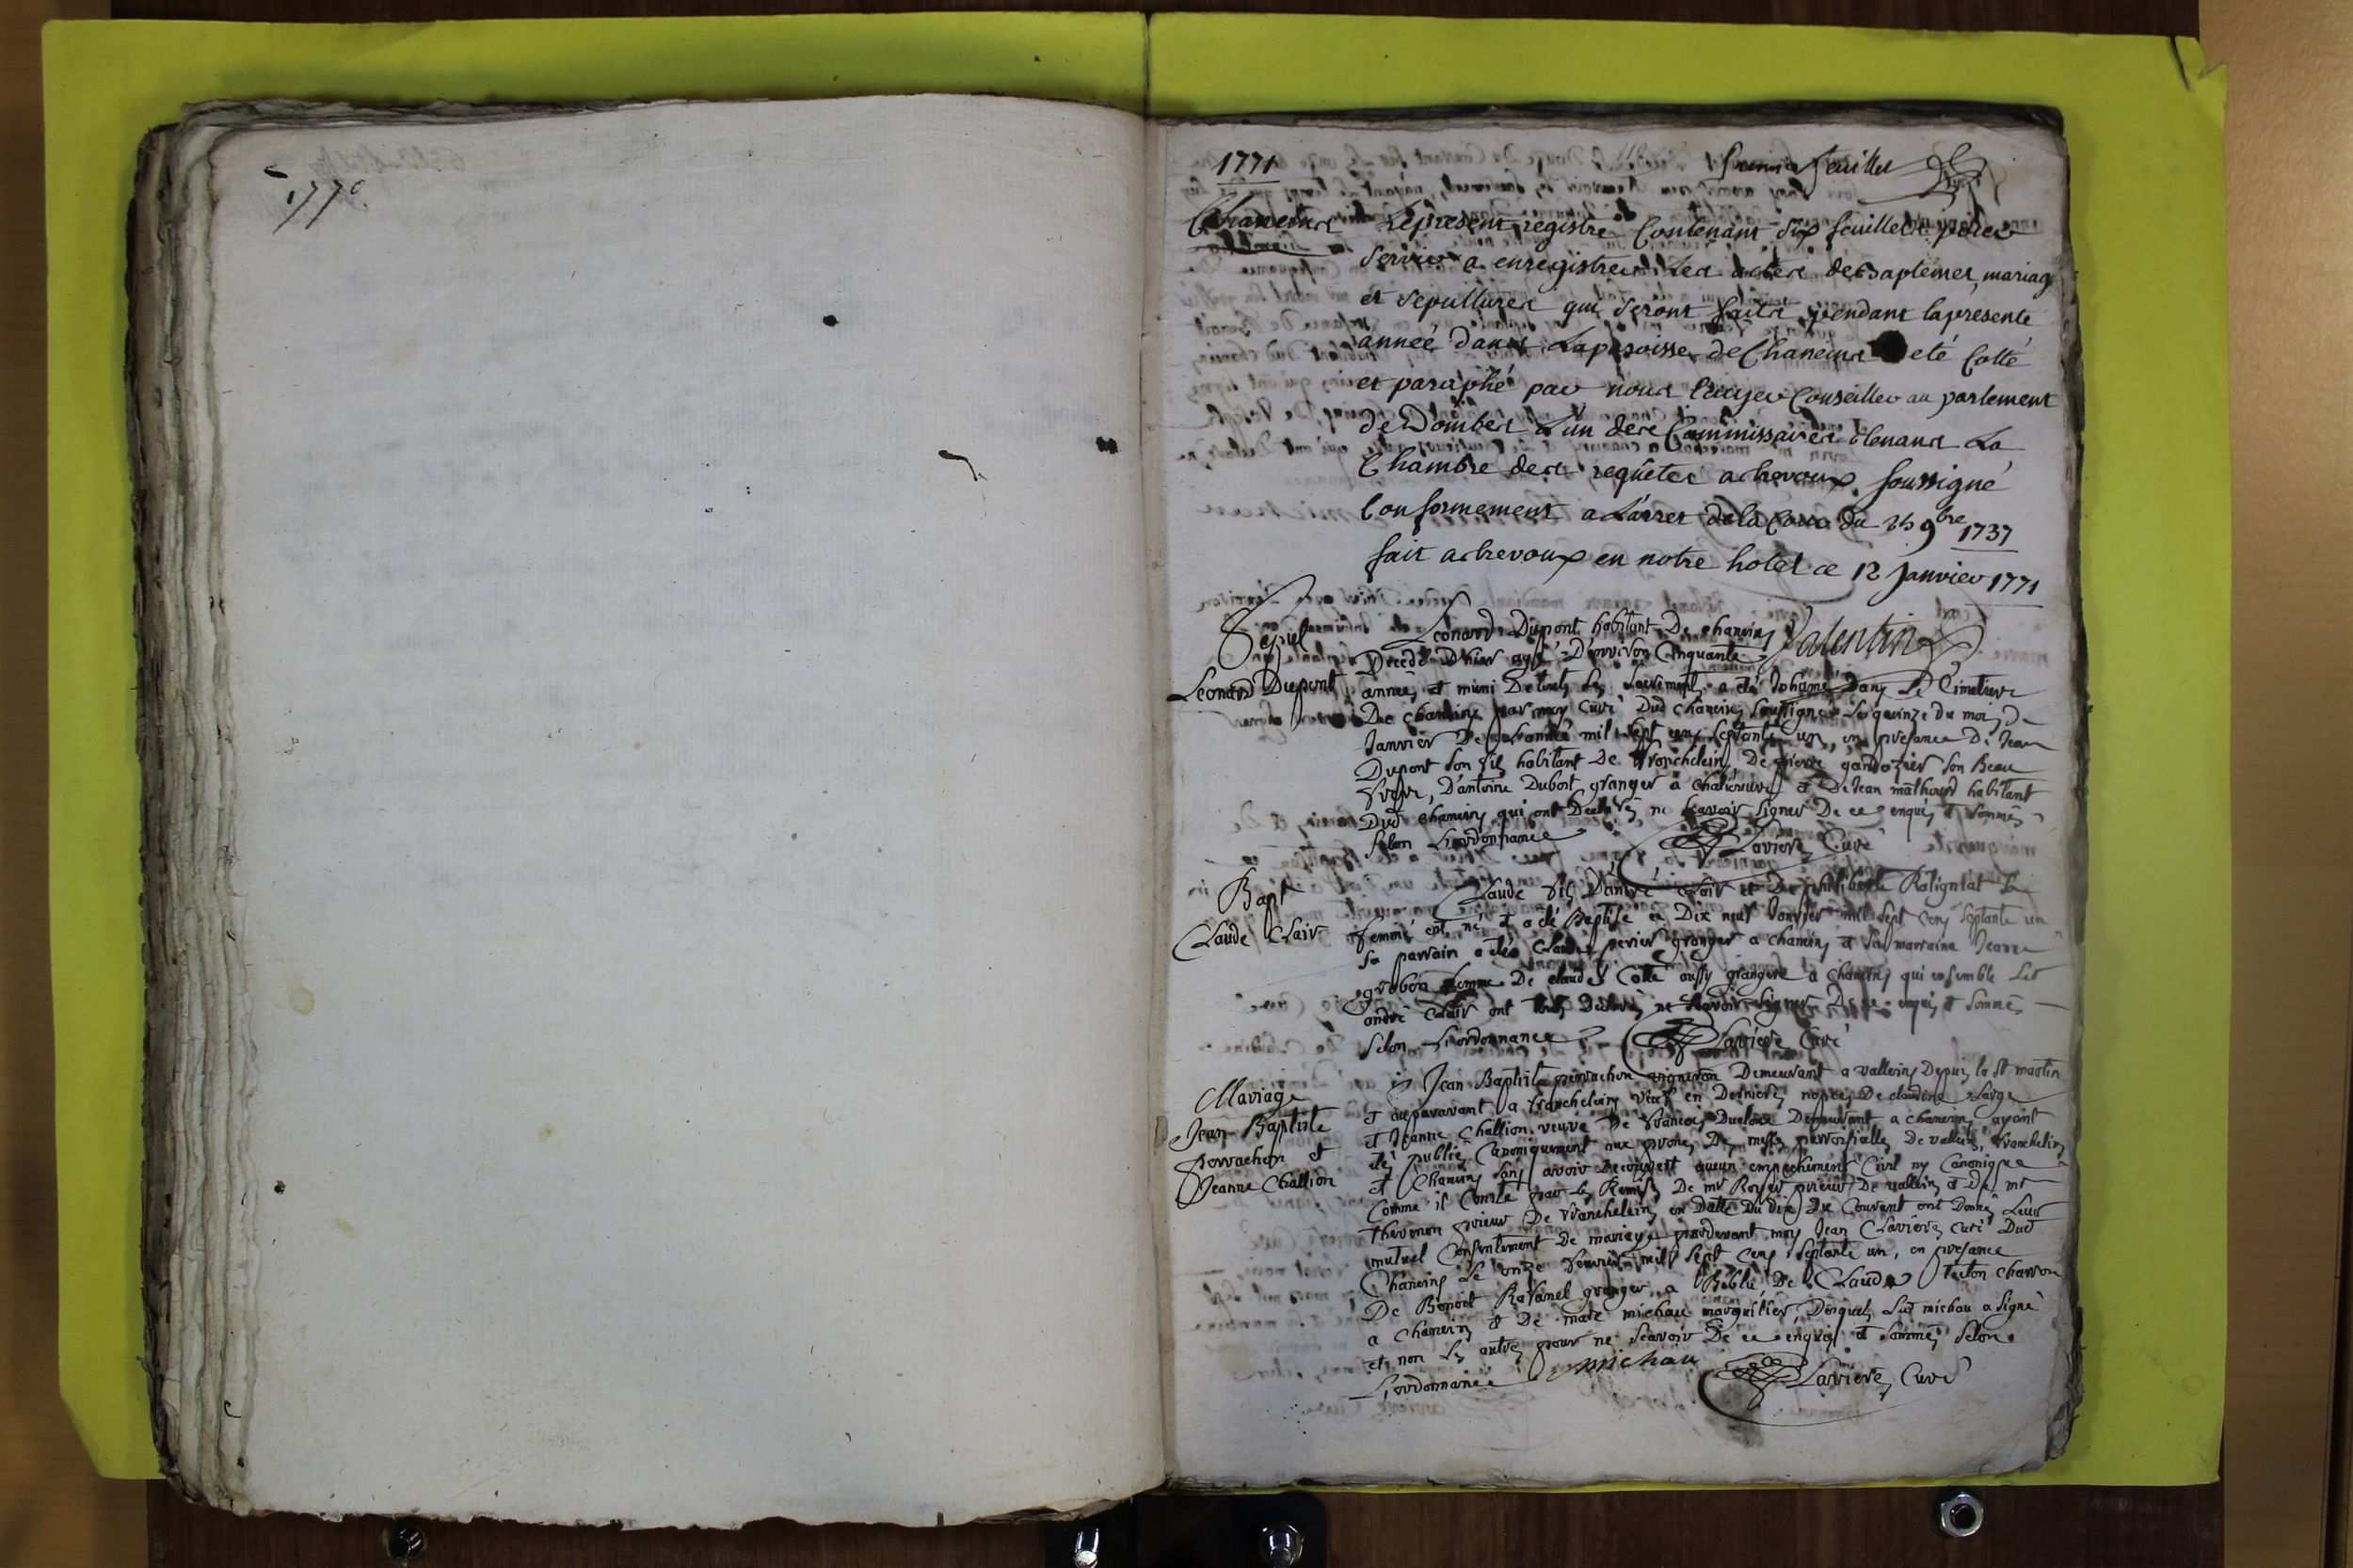 1770
1771
premier feuillet
Chaneins
Le present registre Contenant six feuillets pour
servir a enregistrer les actes de baptemes, mariag
et sepultures qui seront faits pendant la presente
année dans la paroisse de Chaneins eté Cotté
et paraphé par nous Ecuyer Conseiller au parlement
de Dombes l'un des Commissaires tenans La
Chambre des requêtes a trevoux soussigné
Conformement a L'arret de la Cour du 9bre 1737
fait a trevoux en notre hotel ce 12 Janvier 1771
Valentin
Sepul
Leonard Dupont
Leonard Dupont habitant De chaneins
Decedé D'hier agé D'environ Cinquante
années et muni De touts les sacrements a eté Inhumé Dans Le Cimetiere
De chaneins par moy Curé Dud chaneins soussigné Le quinze du mois De
Janvier De l'année mil sept cens septante un, en presance De Jean
Dupont son fils habitant De francheleins De pierre gandozier son Beau
frere, D'antoine Dubost granger a chateneuve et De Jean mathourd habitant
Dud chaneins qui ont Declarés ne scavoir signer De ce enquis et sommés
selon L'ordonnance
Lariere Curé
Bapt
Claude Clair
Claude fils D'andre Clair et De philiberte Ratignlat sa
femme est né et a eté Baptisé ce Dix neuf Janvier mil sept cens septante un
sa parrain a eté Claude perier granger a chaneins et sa marraine Jeanne
grobon femme De claude Cotte aussy grangere a chaneins qui ensemble Led
andré Clair ont touts Declarés ne scavoir signer De ce enquis et sommés
selon L'ordonnance
Lariere Curé
Mariage
Jean Baptiste
pervachon et
Jeanne Challion
Jean Baptiste pervachon vigneron Demeurant a valleins Depuis la St martin
et auparavant a francheleins veuf en Dernieres nopces De claudine Large
et Jeanne Challion veuve De francois Duclose Demeurant a chaneins ayant
etés publiés Canoniquement aux prones Des messes parroissialles De valleins, francheleins
et Chaneins sans avoir Decouvert aucun empechement Civil ny Canonique
Comme il Conste par les Remises De mr Royer prieur De valleins et De mr
thevenon prieur De francheleins en Datte Du Dix Du Courant ont Donnés Leur
mutuel Consentement De mariage pardevant moy Jean Lariere Curé Dud
Chaneins Le onze feuvrier mil sept cens septante un, en presance
De Benoit Ravanel granger a Biblié De Claude teton charron
a chaneins et De marc michau marguillier, Desquels Led michau a signé
et non Les autres pour ne scavoir De ce enquis et sommés selon
L'ordonnance
michau
Lariere Curé